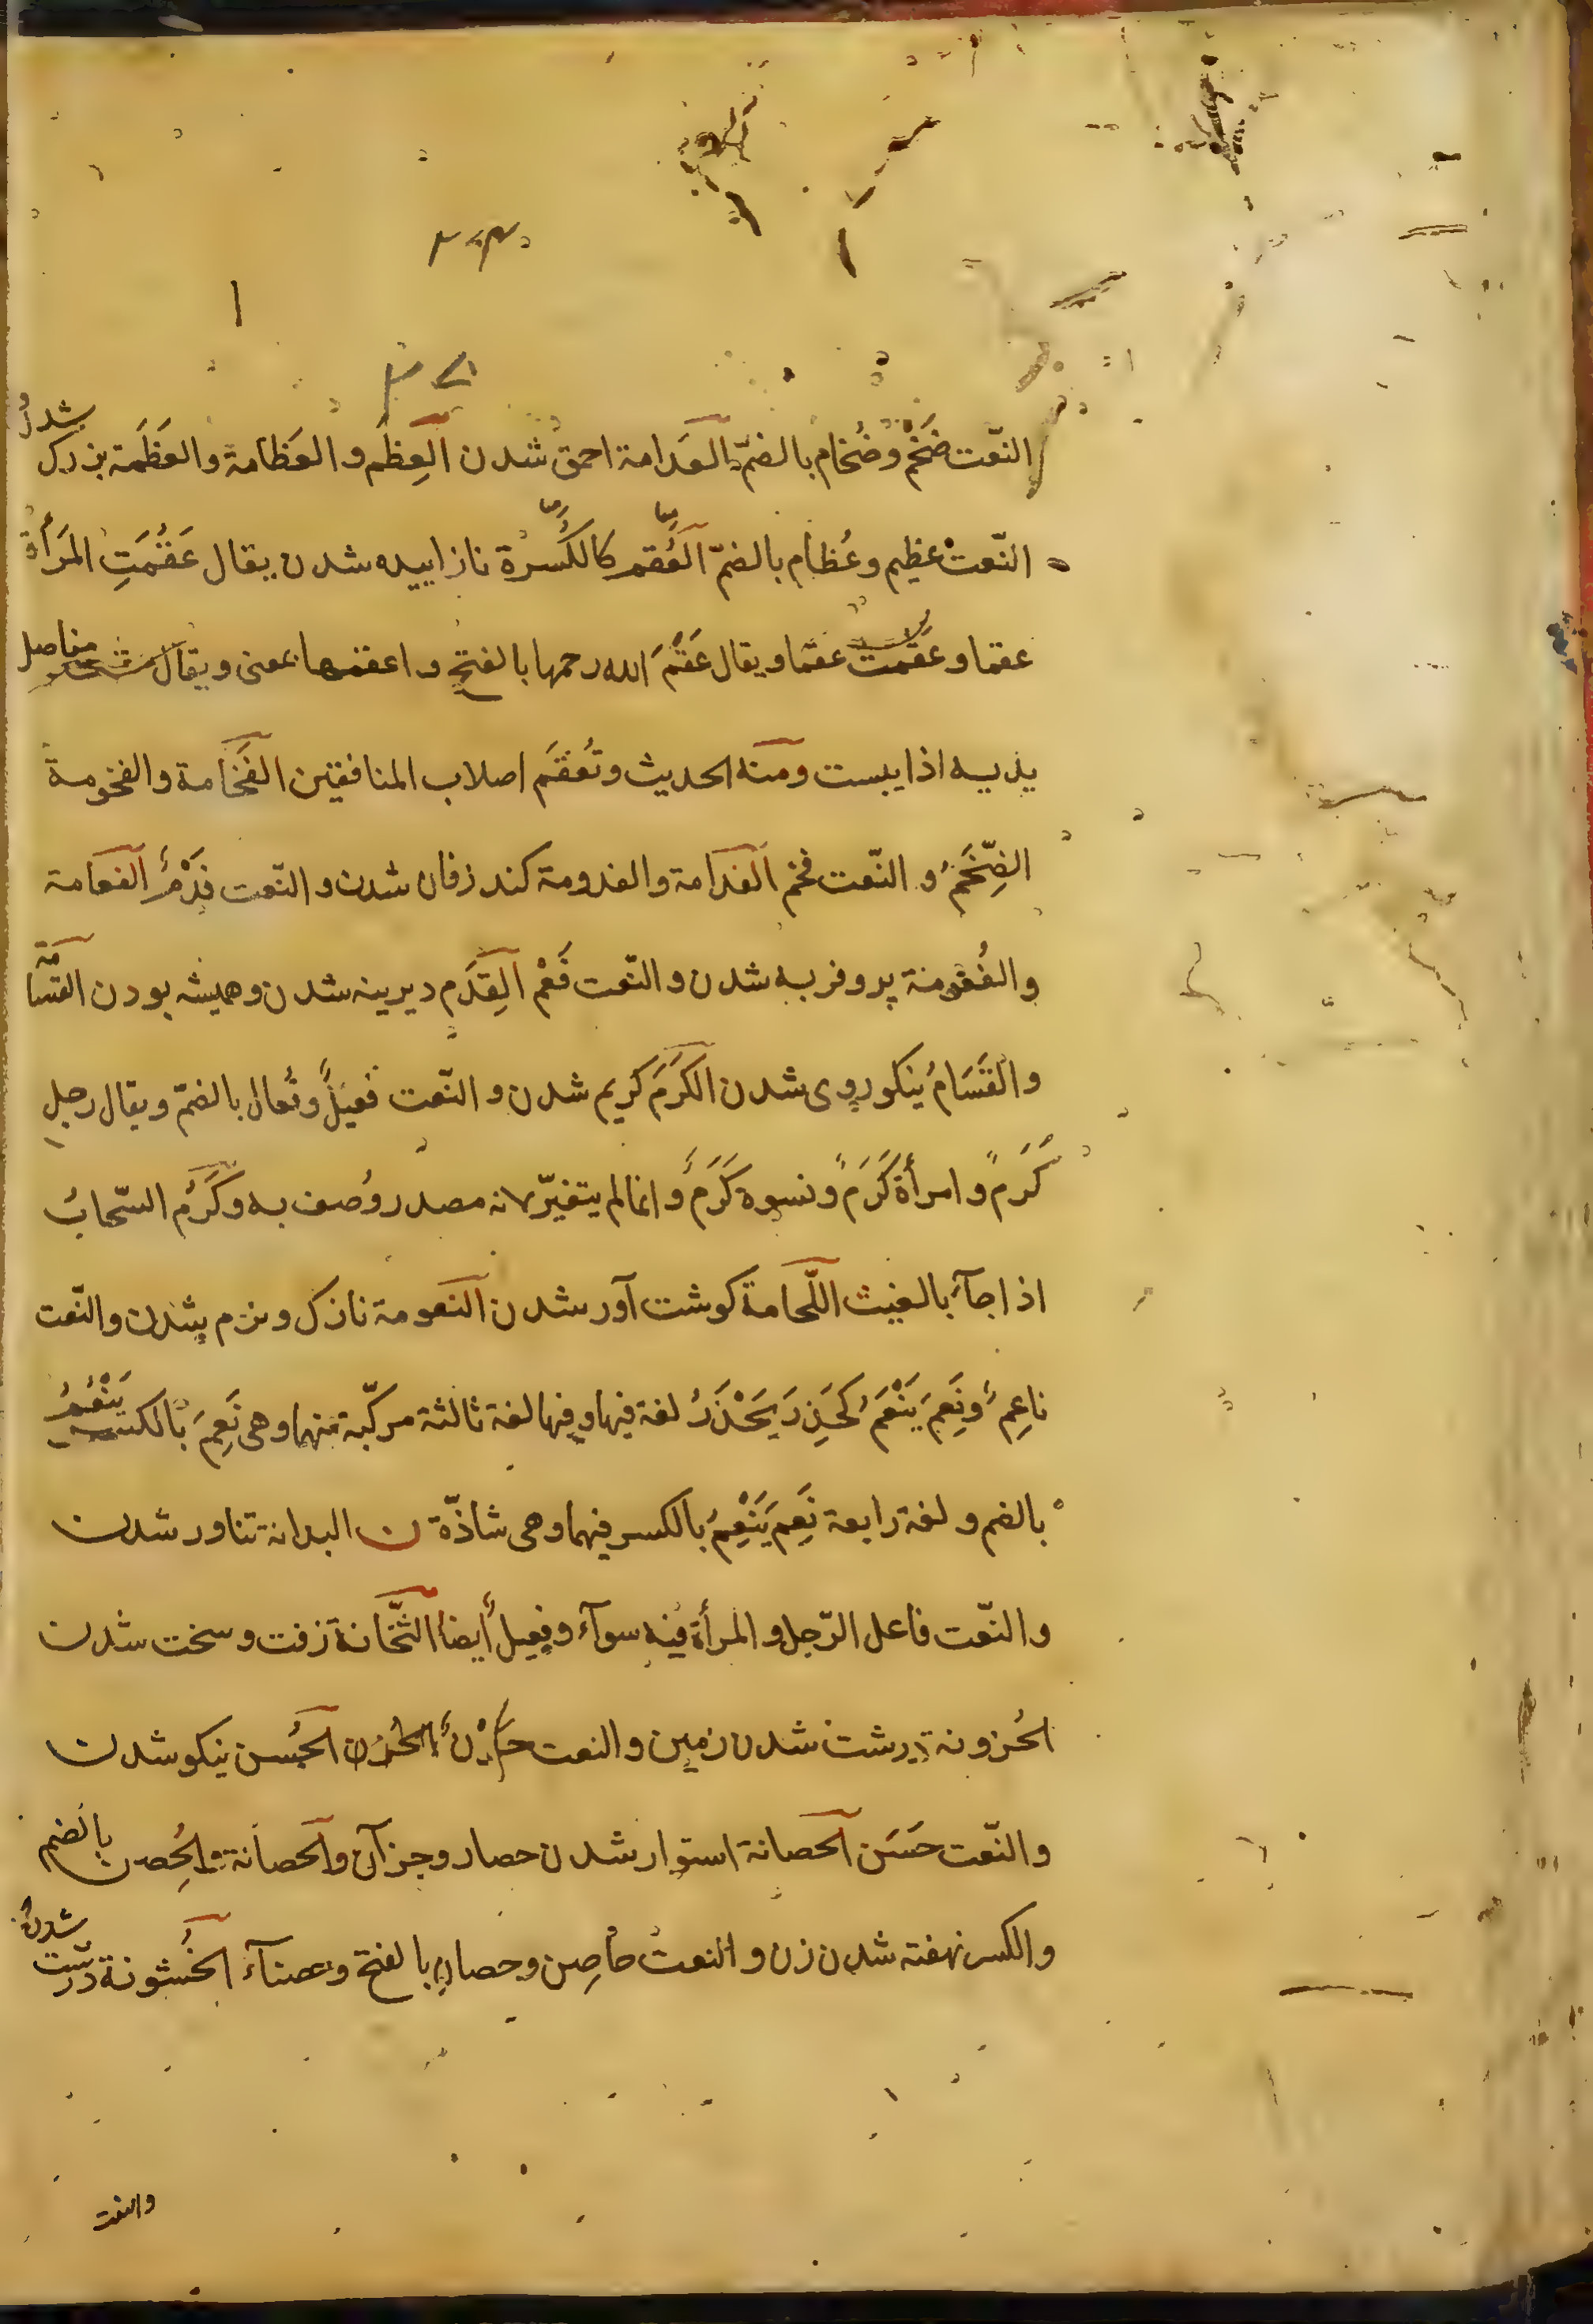 النّعت ضَخْم وضُخام بالضمّ العَدامة احمق شدن العِظَم والعَظامة والعَظَمة بزرك شدن
النّعت عظيم وعُظام بالضمّ العُقم كالكُسرة نازاييده شدن يقال عَقُمَتِ المَرأة
عقما وعَقمت عقمًا ويقال عَقَمَ الله رحمها بالفتح واعقمها بمعنى ويقال مفاصل
يديه اذا يبست ومنه الحديث وتُعقَم اصلاب المنافقين الفَخامة والفخومة
الضِّخَمُ و النّعت فخم الفدامة والفدومة كند زفان شدن و النّعت فَدْمٌ الفعامة
والفُعُومة پر وفربه شدن و النّعت فَعْم القِدَم ديرينه شدن وهميشه بودن القسامة
والقَسَامُ نيكو روى شدن الكرَمَ كريم شدن و النّعت فعيلٌ وفُعال بالضمّ ويقال رجل
كَرَمٌ وامرأة كَرَمٌ ونسوة كَرَمٌ وانما لم يتغيّر لانه مصدر وُصف به وكَرُم السّحابُ
اذا جآء بالغيث اللّحامة كوشت آور شدن النعومة نازك ونرم شدن والنّعت
ناعِمٌ ونَعِمَ يَنْعَمُ كحَذِرَ يَحْذَرُ لغة فيها وفيها لغة ثالثة مركّبة منهما وهى نَعِمَ بالكسر يَنْعُمُ
بالضم ولغة رابعة نَعِمَ يَنْعِمُ بالكسر فيهما وهى شاذّة ن البدانة تناور شدن
والنّعت فاعل الرّجل والمرأة فيه سوآء وفعيلٌ أيضاً الثّخانة زفت و سخت شدن
الحُزونة درشت شدن زمين والنعت حَزْنٌ الحُسن نيكو شدن
والنّعت حَسَن الحصانة استوار شدن حصار وجز آن والحصانة والحُصن بالضم
والكسر نهفته شدن زن والنعت حاصِن وحصان بالفتح وحصنآء الخُشونة درشت شدن
والنعت